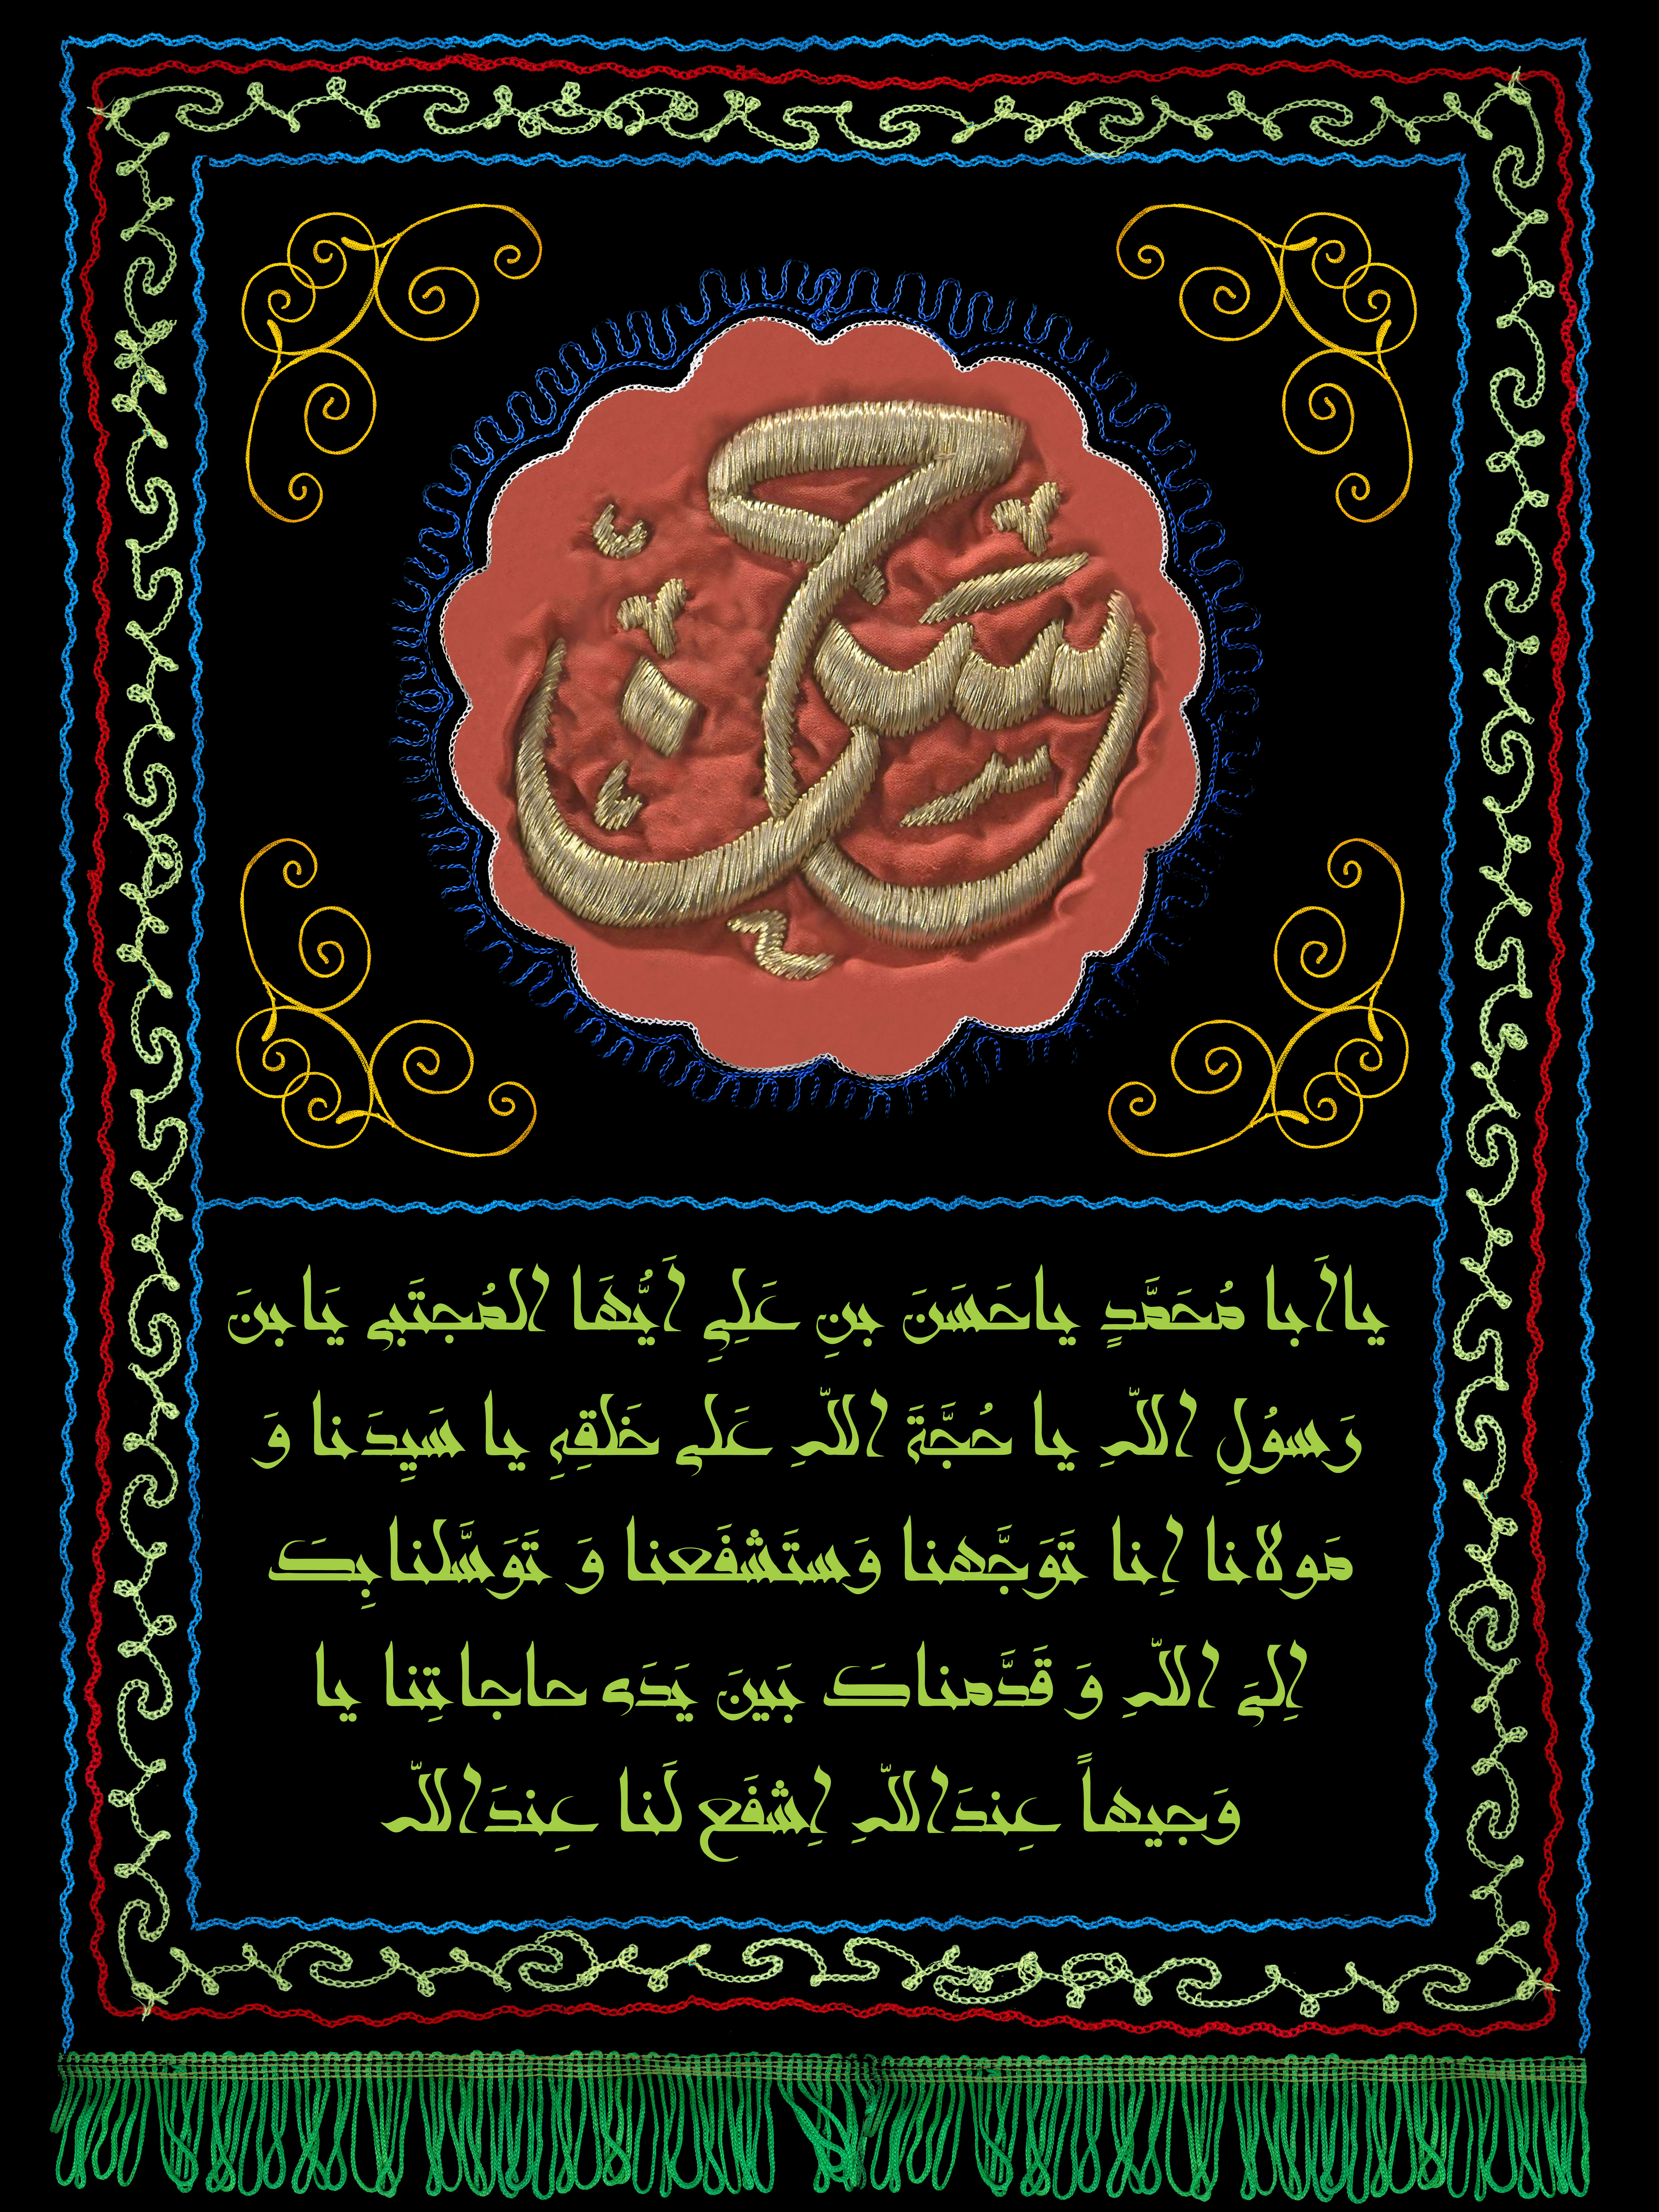 حسن
یااَبا مُحَمَّدٍ یاحَسَنَ بنِ عَلِیِ اَیُّهَا المُجتَبی یَابنَ
رَسوُلِ اللّهِ یا حُجَّةَ اللّهِ عَلی خَلقِهِ یا سَیِدَنا وَ
مَولانا اِنا تَوَجَّهنا وَستَشفَعنا وَ تَوَسَّلنابِکَ
اِلیَ اللّهِ وَ قَدَّمناکَ بَینَ یَدَی حاجاتِنا یا
وَجیهاً عِندَاللّهِ اِشفَع لَنا عِندَاللّه